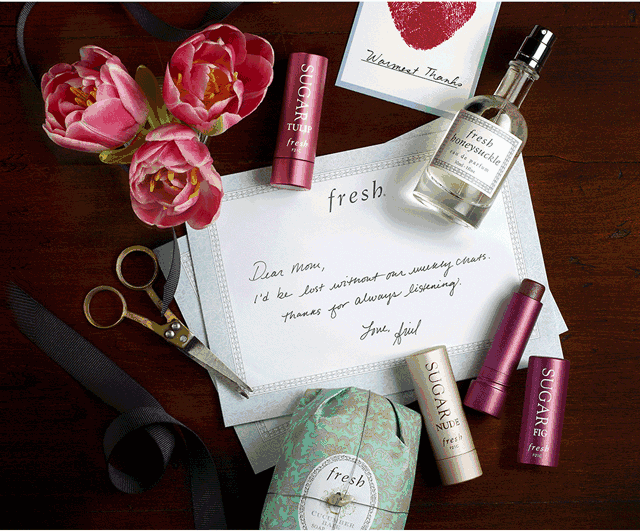 Warmest Thanks
SUGAR
TULIP
fresh
fresh
honeysuckle
eau de parfum
fresh
Dear Mom,
I'd be lost without our weekly chats.
Thanks for always listening!
Love, Ariel
SUGAR
NUDE
fresh
SUGAR
FIG
fresh
fresh
CUCUMBER